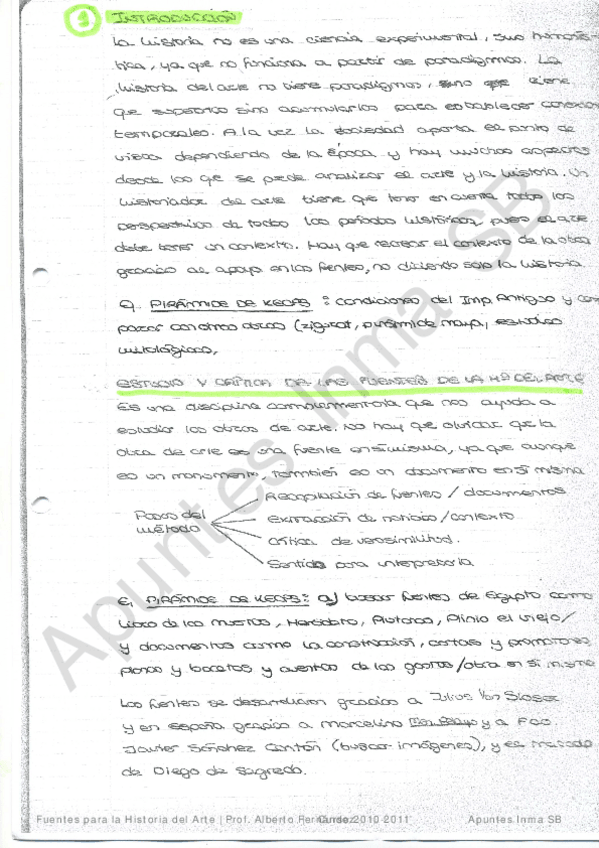 1 INTRODUCCIÓN
La historia no es una ciencia experimental, sino humanís-
tica, ya que no funciona a partir de paradigmas. La
historia del arte no tiene paradigmas, sino que tiene
que superarlos sino acumularlos para establecer conexiones
temporales. A la vez la sociedad aporta el punto de
vista dependiendo de la época y hay muchos aspectos
desde los que se puede analizar el arte y la historia. Un
historiador de arte tiene que tener en cuenta todas las
perspectivas de todos los períodos históricos, pues el arte
debe tener un contexto. Hay que recrear el contexto de la obra
gracias al apoyo en las fuentes, no diciendo solo la historia.
Ej. PIRÁMIDE DE KEOPS: condiciones del Imp. Antiguo y com
parar con otras obras (zigurat, pirámide maya, estudios
mitológicos,
ESTUDIO Y CRÍTICA DE LAS FUENTES DE LA Hª DEL ARTE
Es una disciplina complementaria que nos ayuda a
estudiar las obras de arte. No hay que olvidar que la
obra de arte es una fuente en sí misma, ya que aunque
es un monumento, también es un documento en sí misma
Pasos del
método
Recopilación de fuentes / documentos
extracción de noticias/contexto
Crítica de verosimilitud.
Sentido para interpretarla
Ej. PIRÁMIDE DE KEOPS: a) buscar fuentes de Egipto como
Libro de los muertos, Heródoto, Plutarco, Plinio el viejo/
y documentos como la construcción, cartas y promotores
planos y bocetos y cuentas de los gastos/obra en sí misma
Las fuentes se desarrollaron gracias a Julius Von Slosser
y en España gracias a Marcelino y a Fco.
Javier Sánchez Cantón (buscar imágenes), y el tratado
de Diego de Sagredo.
Apuntes Inma SB
Fuentes para la Historia del Arte | Prof. Alberto Fernández Curso 2010-2011 Apuntes Inma SB